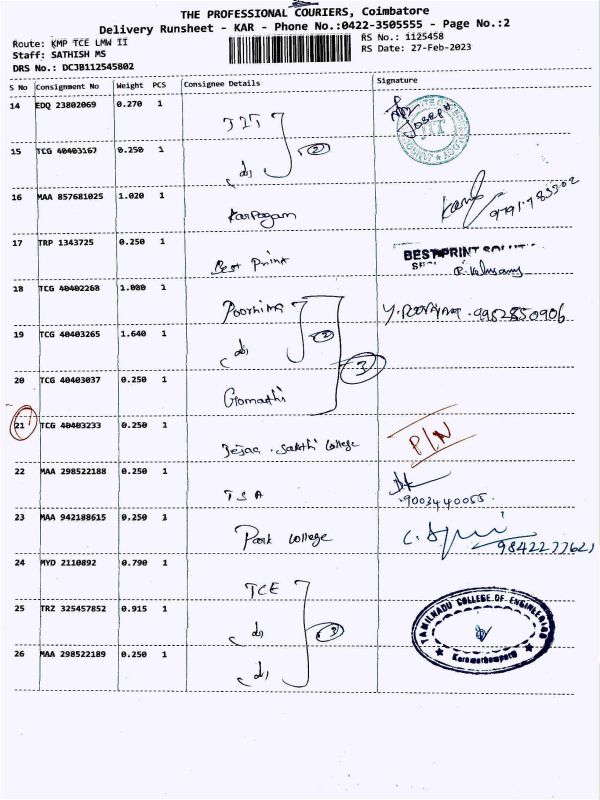 THE PROFESSIONAL COURIERS, Coimbatore
Delivery Runsheet - KAR - Phone No.:0422-3505555 - Page No.:2
Route: KMP TCE LMW II
RS No.: 1125458
Staff: SATHISH MS
RS Date: 27-Feb-2023
DRS No.: DC3B112545802
S No Consignment No Weight PCS Consignee Details Signature
14 EDQ 23802069 0.270 1 JIT
JOSEPH
JIT
15 TCG 40403167 0.250 1 2
16 MAA 857681025 1.020 1 Karpagam
17 TRP 1343725 0.250 1 Best Print BEST PRINT
18 TCG 40402268 1.080 1 Poornima Y. POORNIMA. 9952850906
19 TCG 40403265 1.640 1 2
3
20 TCG 40403037 0.250 1 Gomathi
21 TCG 40403233 0.250 1 Sakthi College P/N
22 MAA 298522188 0.250 1 TSA
9003440055
23 MAA 942188615 0.250 1 Park College
24 MYD 2110892 0.790 1 TCE
25 TRZ 325457852 0.915 1 3
TAMILNADU COLLEGE OF ENGINEERING
Karumathampatti
26 MAA 298522189 0.250 1